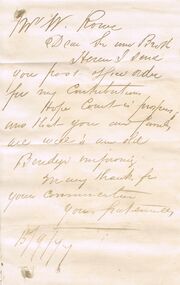 Mr W. Rowe
Dear Sir and Broth
Herein I send
you post office order
for my Contribution
Hope Court is progressing
and that you and family
are well &
Bendigo improving
Many thanks for
your
Yours fraternally
15/9/97